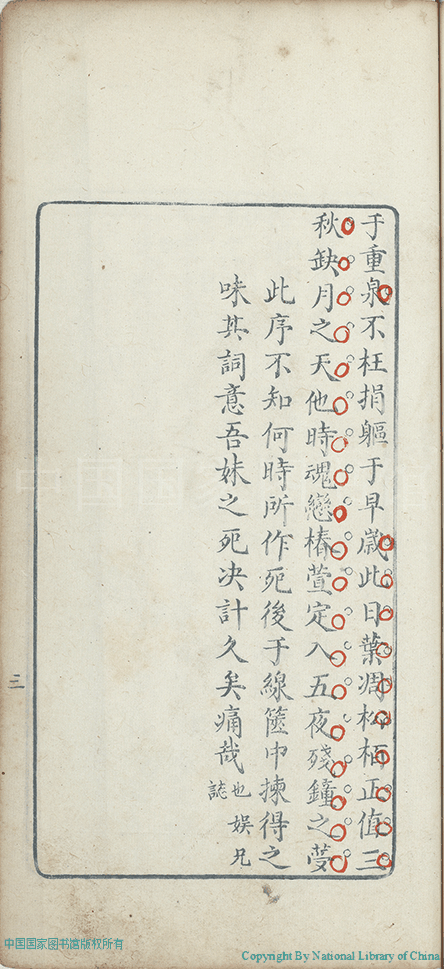 于重泉不枉捐軀于早歲此日葉凋松栢正值三
秋缺月之天他時魂戀椿萱定入五夜殘鐘之夢
此序不知何時所作死後于線篋中揀得之
味其詞意吾妹之死决計久矣痛哉
也娱兄
誌
三
中国国家图书馆版权所有
Copyright By National Library of China